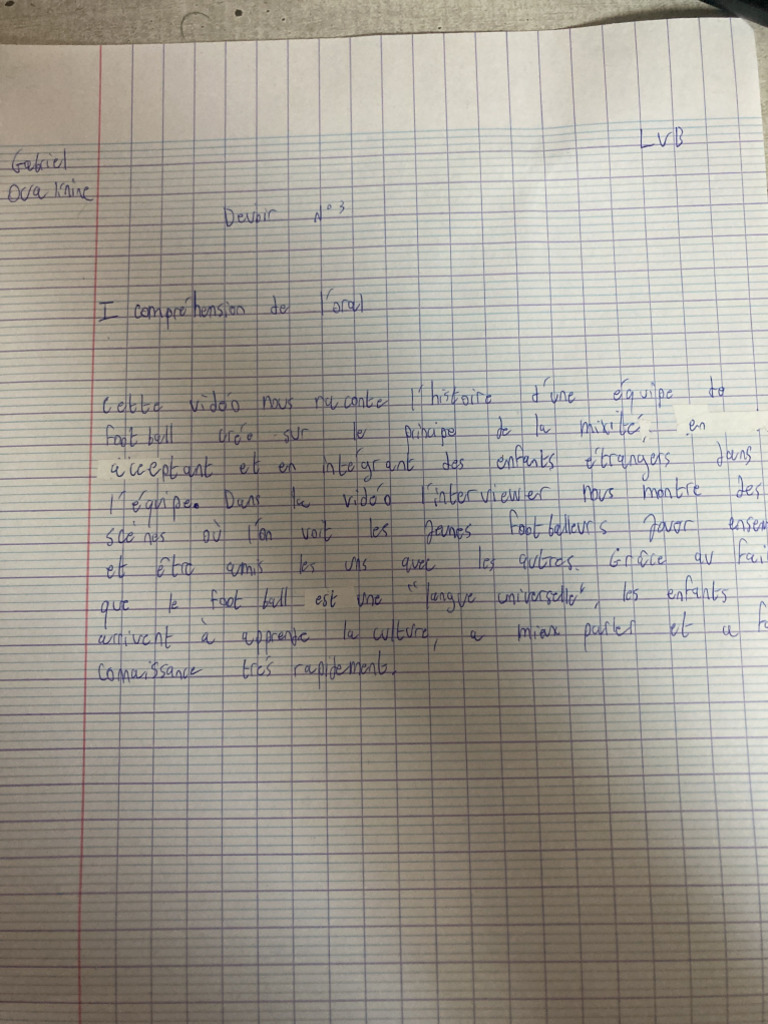 LVB
Gabriel
Ovaknine
Devoir N°3
I compréhension de l'oral
Cette vidéo nous raconte l'histoire d'une équipe de
foot ball crée sur le principe de la mixité, en
acceptant et en intégrant des enfants étrangers dans
l'équipe. Dans la vidéo l'interviewer nous montre des
scènes où l'on voit les jeunes footballeurs jouer
et être amis les uns avec les autres. Grâce au fai
que le foot ball est une "langue universelle", les enfants
arrivent à apprende la culture, a miax parler et a
connaissance très rapidement.